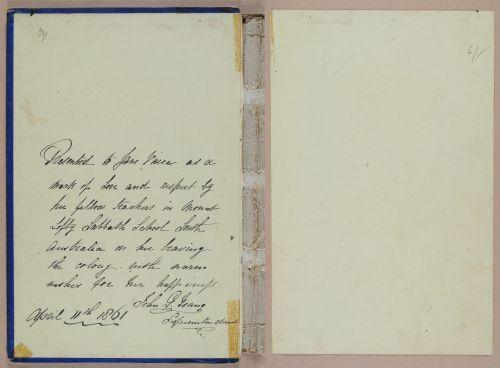 Presented to Jane Vince as a
mark of Love and respect by
her fellow teachers in Mount
Lofty Sabbath School South
Australia on her leaving
the colony. with warm
wishes for her happiness
John G.
Superintendent
April 11th 1861